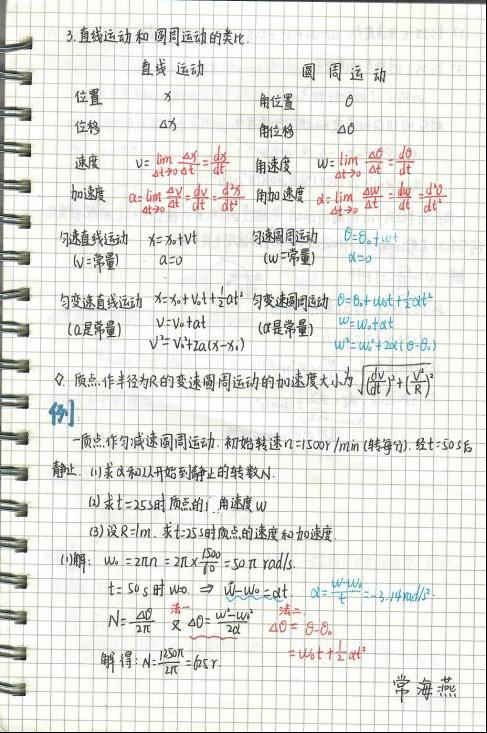 3.直线运动和圆周运动的类比.
直线运动 圆周运动
位置 x 角位置 θ
位移 Δx 角位移 Δθ
速度 v=lim Δt→0 Δx/Δt=dx/dt 角速度 w=lim Δt→0 Δθ/Δt=dθ/dt
加速度 a=lim Δt→0 Δv/Δt=dv/dt=d²x/dt² 角加速度 α=lim Δt→0 Δw/Δt=dw/dt=d²θ/dt²
匀速直线运动 x=x₀+vt 匀速圆周运动 θ=θ₀+wt
(v=常量) a=0 (w=常量) α=0
匀变速直线运动 x=x₀+v₀t+½at² 匀变速圆周运动 θ=θ₀+w₀t+½αt²
(a是常量) v=v₀+at (α是常量) w=w₀+αt
v²=v₀²+2a(x-x₀) w²=w₀²+2α(θ-θ₀)
◊. 质点作半径为R的变速圆周运动的加速度大小为 √((dv/dt)²+(v²/R)²)
例]
一质点作匀减速圆周运动. 初始转速n=1500r/min(转每分). 经t=50s后
静止. (1)求α和从开始到静止的转数N.
(2)求t=25s时质点的 角速度w
(3)设R=1m. 求t=25s时质点的速度和加速度.
(1)解: w₀=2πn=2π×1500/60=50π rad/s.
t=50s时w=0 ⇒ w-w₀=αt. α=(w-w₀)/t=-3.14rad/s².
N=Δθ/2π 又 法一 Δθ=(w²-w₀²)/2α 法二: Δθ=θ-θ₀
=w₀t+½αt²
解得: N=1250π/2π=625r.
常海燕